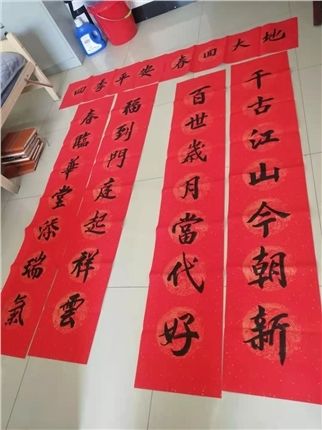 四季平安
春回大地
千古江山今朝新
百世歲月當代好
福到門庭起祥雲
春臨華堂添瑞氣